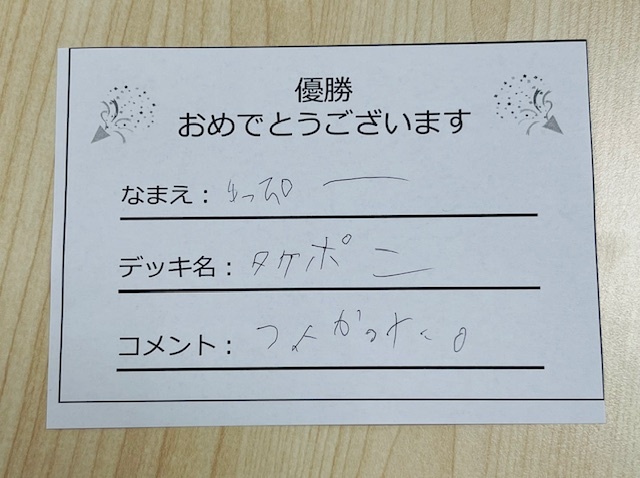 優勝
おめでとうございます
なまえ：ゆっぴー
デッキ名：タケポニ
コメント：つよかった。